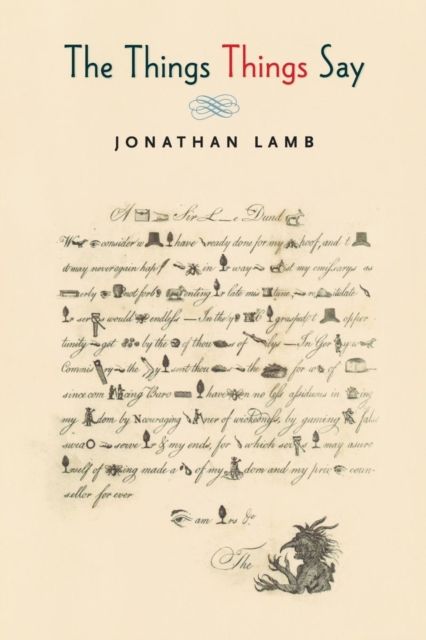 The Things Things Say
JONATHAN LAMB
A Sir L e Dund
consider w have ready done for my hoof, and t
it may never again hap in way st my emissarys as
erly not forb onting r late mis tune, to re
r ser would endless In the gras
tunity get by the of thou s of ys In Ger y w
Commis ry the sent thou the for a of
since com cing Baro have n no less assiduous in ing
my dom by Ncouraging ner of wickedness, by gaming fals
swea serve r & my ends, for which ser I may asure
rself of ing made a of my dom and my priv coun-
sellor for ever
am rs &c
The